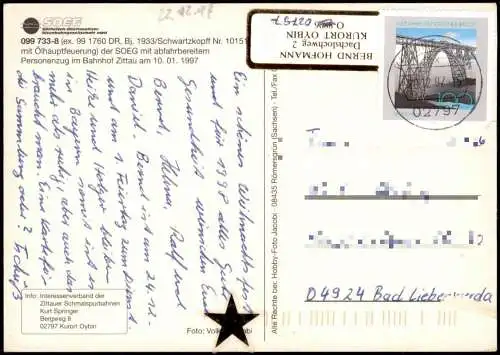 22.12.97
SOEG
Sächsisch-Oberlausitzer
Eisenbahngesellschaft mbH
099 733-8 (ex. 99 1760 DR, Bj. 1933/Schwartzkopff Nr. 10151
mit Ölhauptfeuerung) der SOEG mit abfahrbereitem
Personenzug im Bahnhof Zittau am 10. 01. 1997
Ein schönes Weihnachtsfest
und für 1998 alles Gute
Gesundheit wünschen Euch
Bernd, Helma, Ralf und
Daniel. Bernd ist am 24.12.
und am 1. Feiertag zum Dienst
Heike und Holger bleiben
in Bayern, sonst ist es
mehr als ruhig, aber auch das
braucht man. Eine Karte für
die Sammlung oder? Tschüß
Info: Interessenverband der
Zittauer Schmalspurbahnen
Kurt Springer
Bergweg 8
02797 Kurort Oybin
Foto:
Alte Rechte bei: Hobby-Foto Jacobi · 08435 Römersgrün (Sachsen) · Tel./Fax
BERND HOFMANN
Dachslochweg 2
KURORT OYBIN
02797
100
02797
D 04924 Bad Liebenwerda